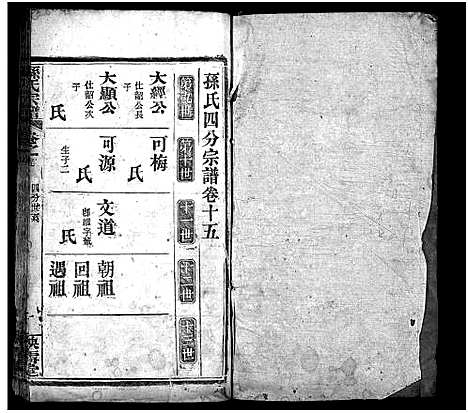 孫氏四分宗譜卷十五
第九世
第十世
十一世
十二世
十三世
大經公
仕韶公長
子
可梅
氏
大顯公
仕韶公次
子
氏
可源
生子二
氏
文道
氏
朝祖
回祖
遇祖
孫氏宗譜
四分世系
映雪堂